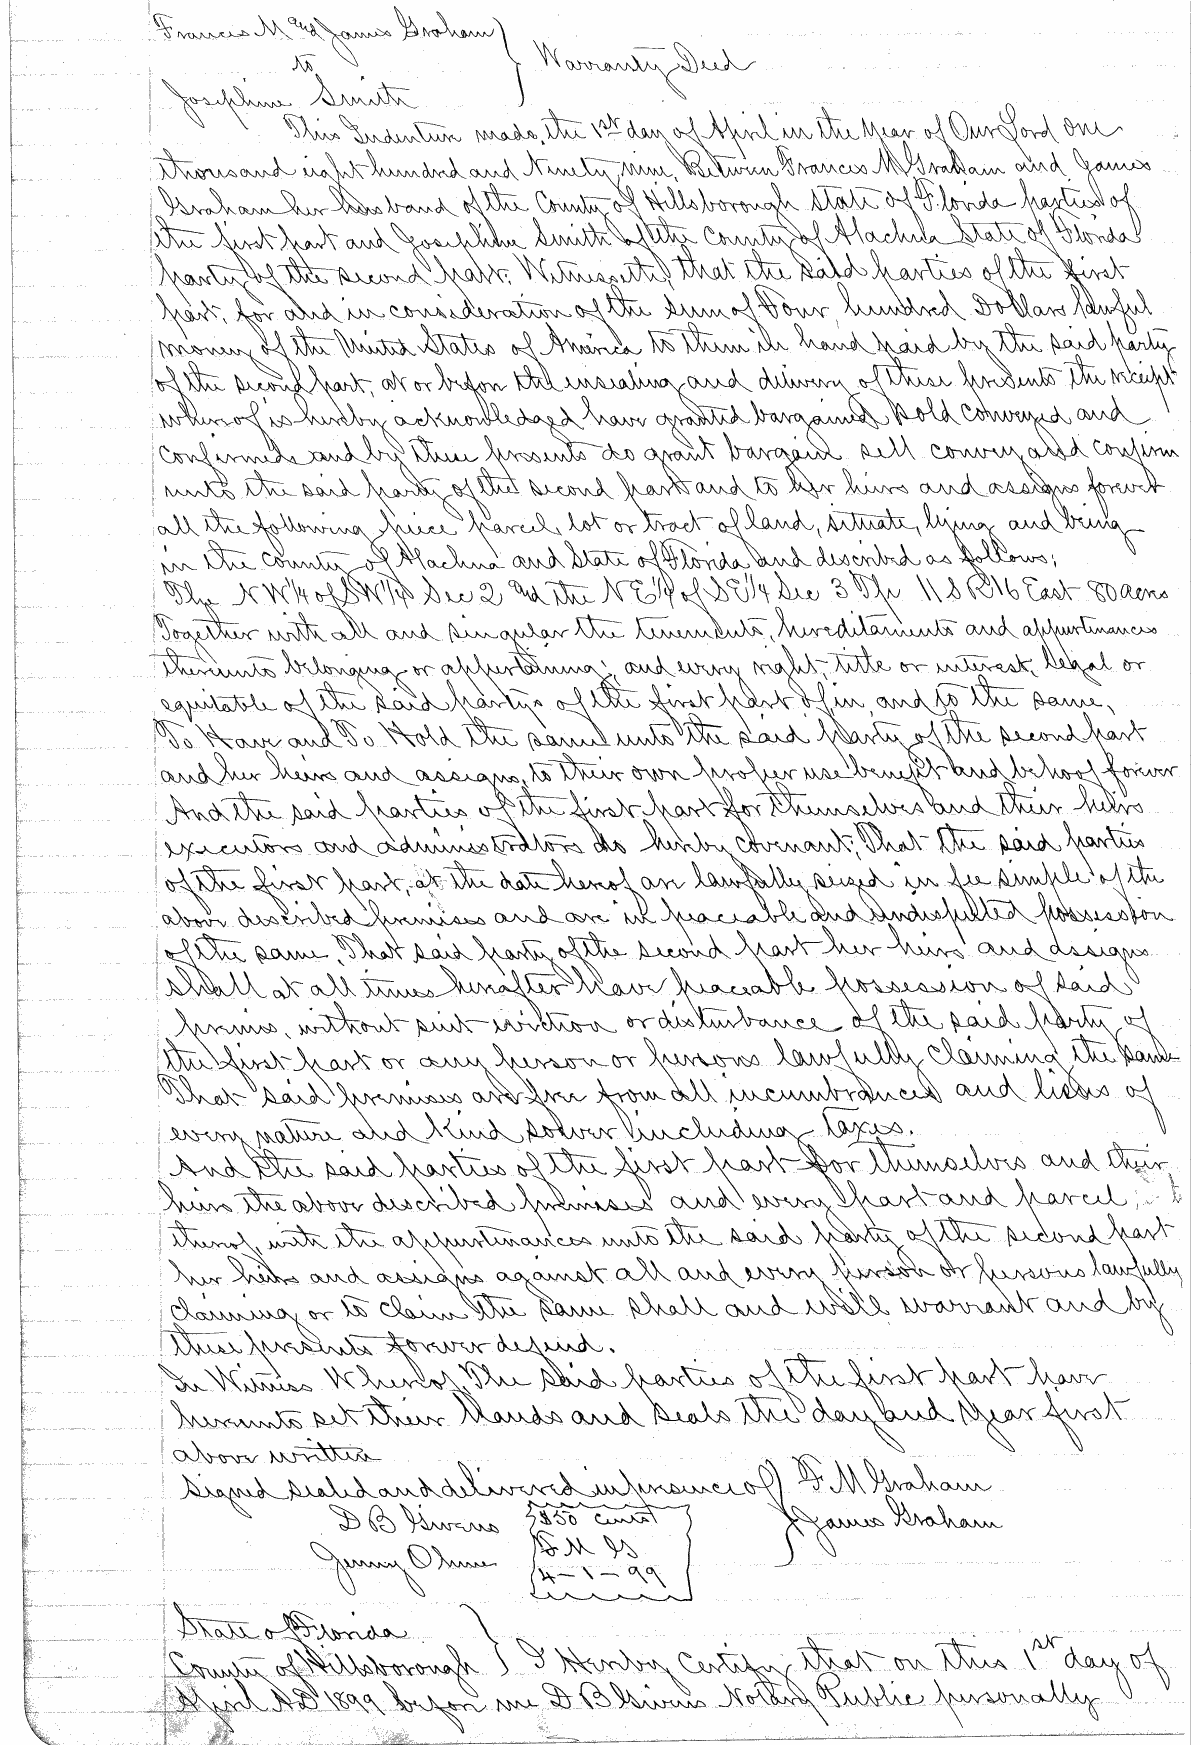 Frances M and James Graham
to
Warranty Deed
Josephine Smith
This Indenture made, the 1st day of April in the Year of Our Lord One
thousand eight hundred and Ninety nine, Between Frances M Graham and James
Graham her husband of the County of Hillsborough State of Florida parties of
the first part and Josephine Smith of the County of Alachua State of Florida
party of the second part; Witnesseth, that the said parties of the first
part, for and in consideration of the sum of Four hundred Dollars lawful
money of the United States of America to them in hand paid by the said party
of the second part, at or before the ensealing and delivery of these presents the receipt
whereof is hereby acknowledged have granted bargained sold conveyed and
confirmed and by these presents do grant bargain sell convey and confirm
unto the said party of the second part and to her heirs and assigns forever
all the following piece parcel, lot or tract of land, situate, lying and being
in the County of Alachua and State of Florida and described as follows;
The NW1/4 of SW1/4 Sec 2 and the NE1/4 of SE1/4 Sec 3 Tp 11 S R 16 East 80 acres
Together with all and singular the tenements, hereditaments and appurtenances
thereunto belonging or appertaining; and every right, title or interest, legal or
equitable of the said partys of the first part of in and to the same,
To Have and To Hold the same unto the said party of the second part
and her heirs and assigns, to their own proper use benefit and behoof forever
And the said parties of the first part for themselves and their heirs
executors and administrators do hereby covenant; That the said parties
of the first part, at the date hereof are lawfully seized in fee simple of the
above described premises and are in peaceable and undisputed possession
of the same. That said party of the second part her heirs and assigns
shall at all times hereafter have peaceable possession of said
premis, without suit eviction or disturbance of the said party of
the first part or any person or persons lawfully claiming the same
That said premises are free from all incumbrances and liens of
every nature and kind soever including taxes.
And the said parties of the first part for themselves and their
heirs the above described premises and every part and parcel
thereof, with the appurtenances unto the said party of the second part
her heirs and assigns against all and every person or persons lawfully
claiming or to claim the same shall and will warrant and by
these presents forever defend.
In Witness Whereof, The said parties of the first part have
hereunto set their hands and seals the day and year first
above written
Signed sealed and delivered in presence of F. M Graham
D B Givens $50 cents James Graham
Jenny F M G
4-1-99
State of Florida
County of Hillsborough I Hereby Certify that on this 1st day of
April AD 1899 before me D B Givens Notary Public personally